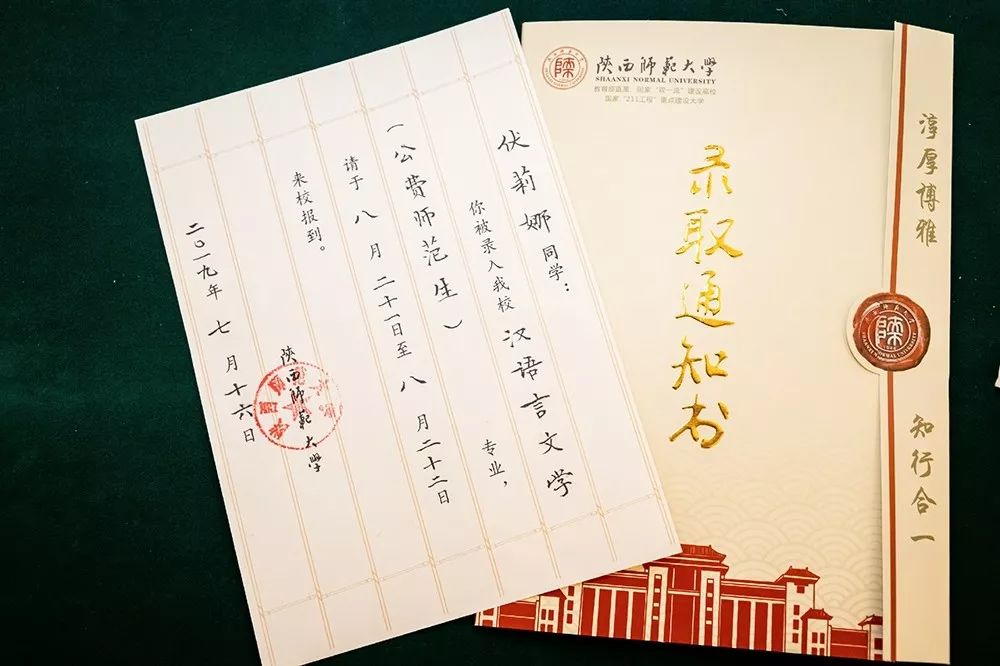 伏莉娜同学：
你被录入我校汉语言文学专业，
（公费师范生）
请于八月二十一日至八月二十二日
来校报到。
陝西師範大學
二〇一九年七月十六日
陝西師範大學
SHAANXI NORMAL UNIVERSITY
教育部直属、国家“双一流”建设高校
国家“211工程”重点建设大学
录取通知书
淳厚博雅
SHAANXI NORMAL UNIVERSITY
知行合一